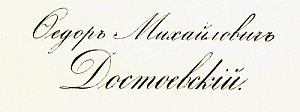 Ѳедоръ Михайловичъ
Достоевскій.